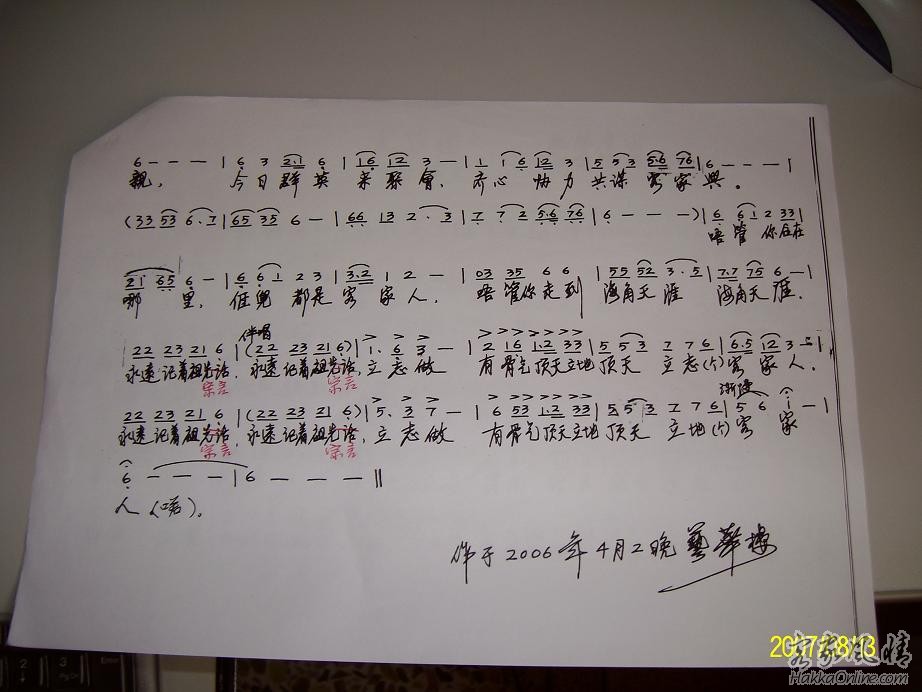 6 - - - | 6 3 2·1 6 | 16 12 3 - | 1 1 6 12 3 | 5 5 3 5·6 76 | 6 - - - |
親， 今日群英 来聚會， 齐心协力 共谋客家興。
(33 53 6·7 | 65 35 6 - | 66 13 2·3 | 7 7 2 5·6 76 | 6 - - -) | 6 6 1 2 33 |
唔管你住在
21 65 6 - | 6 6 1 2 3 | 3·2 1 2 - | 03 35 6 6 | 55 52 3·5 | 7·7 75 6 - |
哪里， 都是客家人， 唔管你走到 海角天涯 海角天涯，
伴唱
22 23 21 6 | (22 23 21 6) | 1· 6 3 - | 2 16 1·2 33 | 5 5 3 7 7 6 | 6·5 12 3 - |
永远记着祖先话，永远记着祖先话，立志做 有骨气顶天立地 顶天 立志(个)客家人．
宗言 宗言
渐慢
22 23 21 6 | (22 23 21 6) | 5· 3 7 - | 6 53 1·2 33 | 5 5 3 7 7 6 | 5 6 i - |
永远记着祖先话，永远记着祖先话，立志做 有骨气顶天立地 顶天 立地(个)客家
宗言 宗言
6 - - - | 6 - - - ||
人（喏）。
作于2006年4月2晚 藝華楼
2007 8 13
客家风情
HakkaOnline.com
2
3
PgDn
Enter